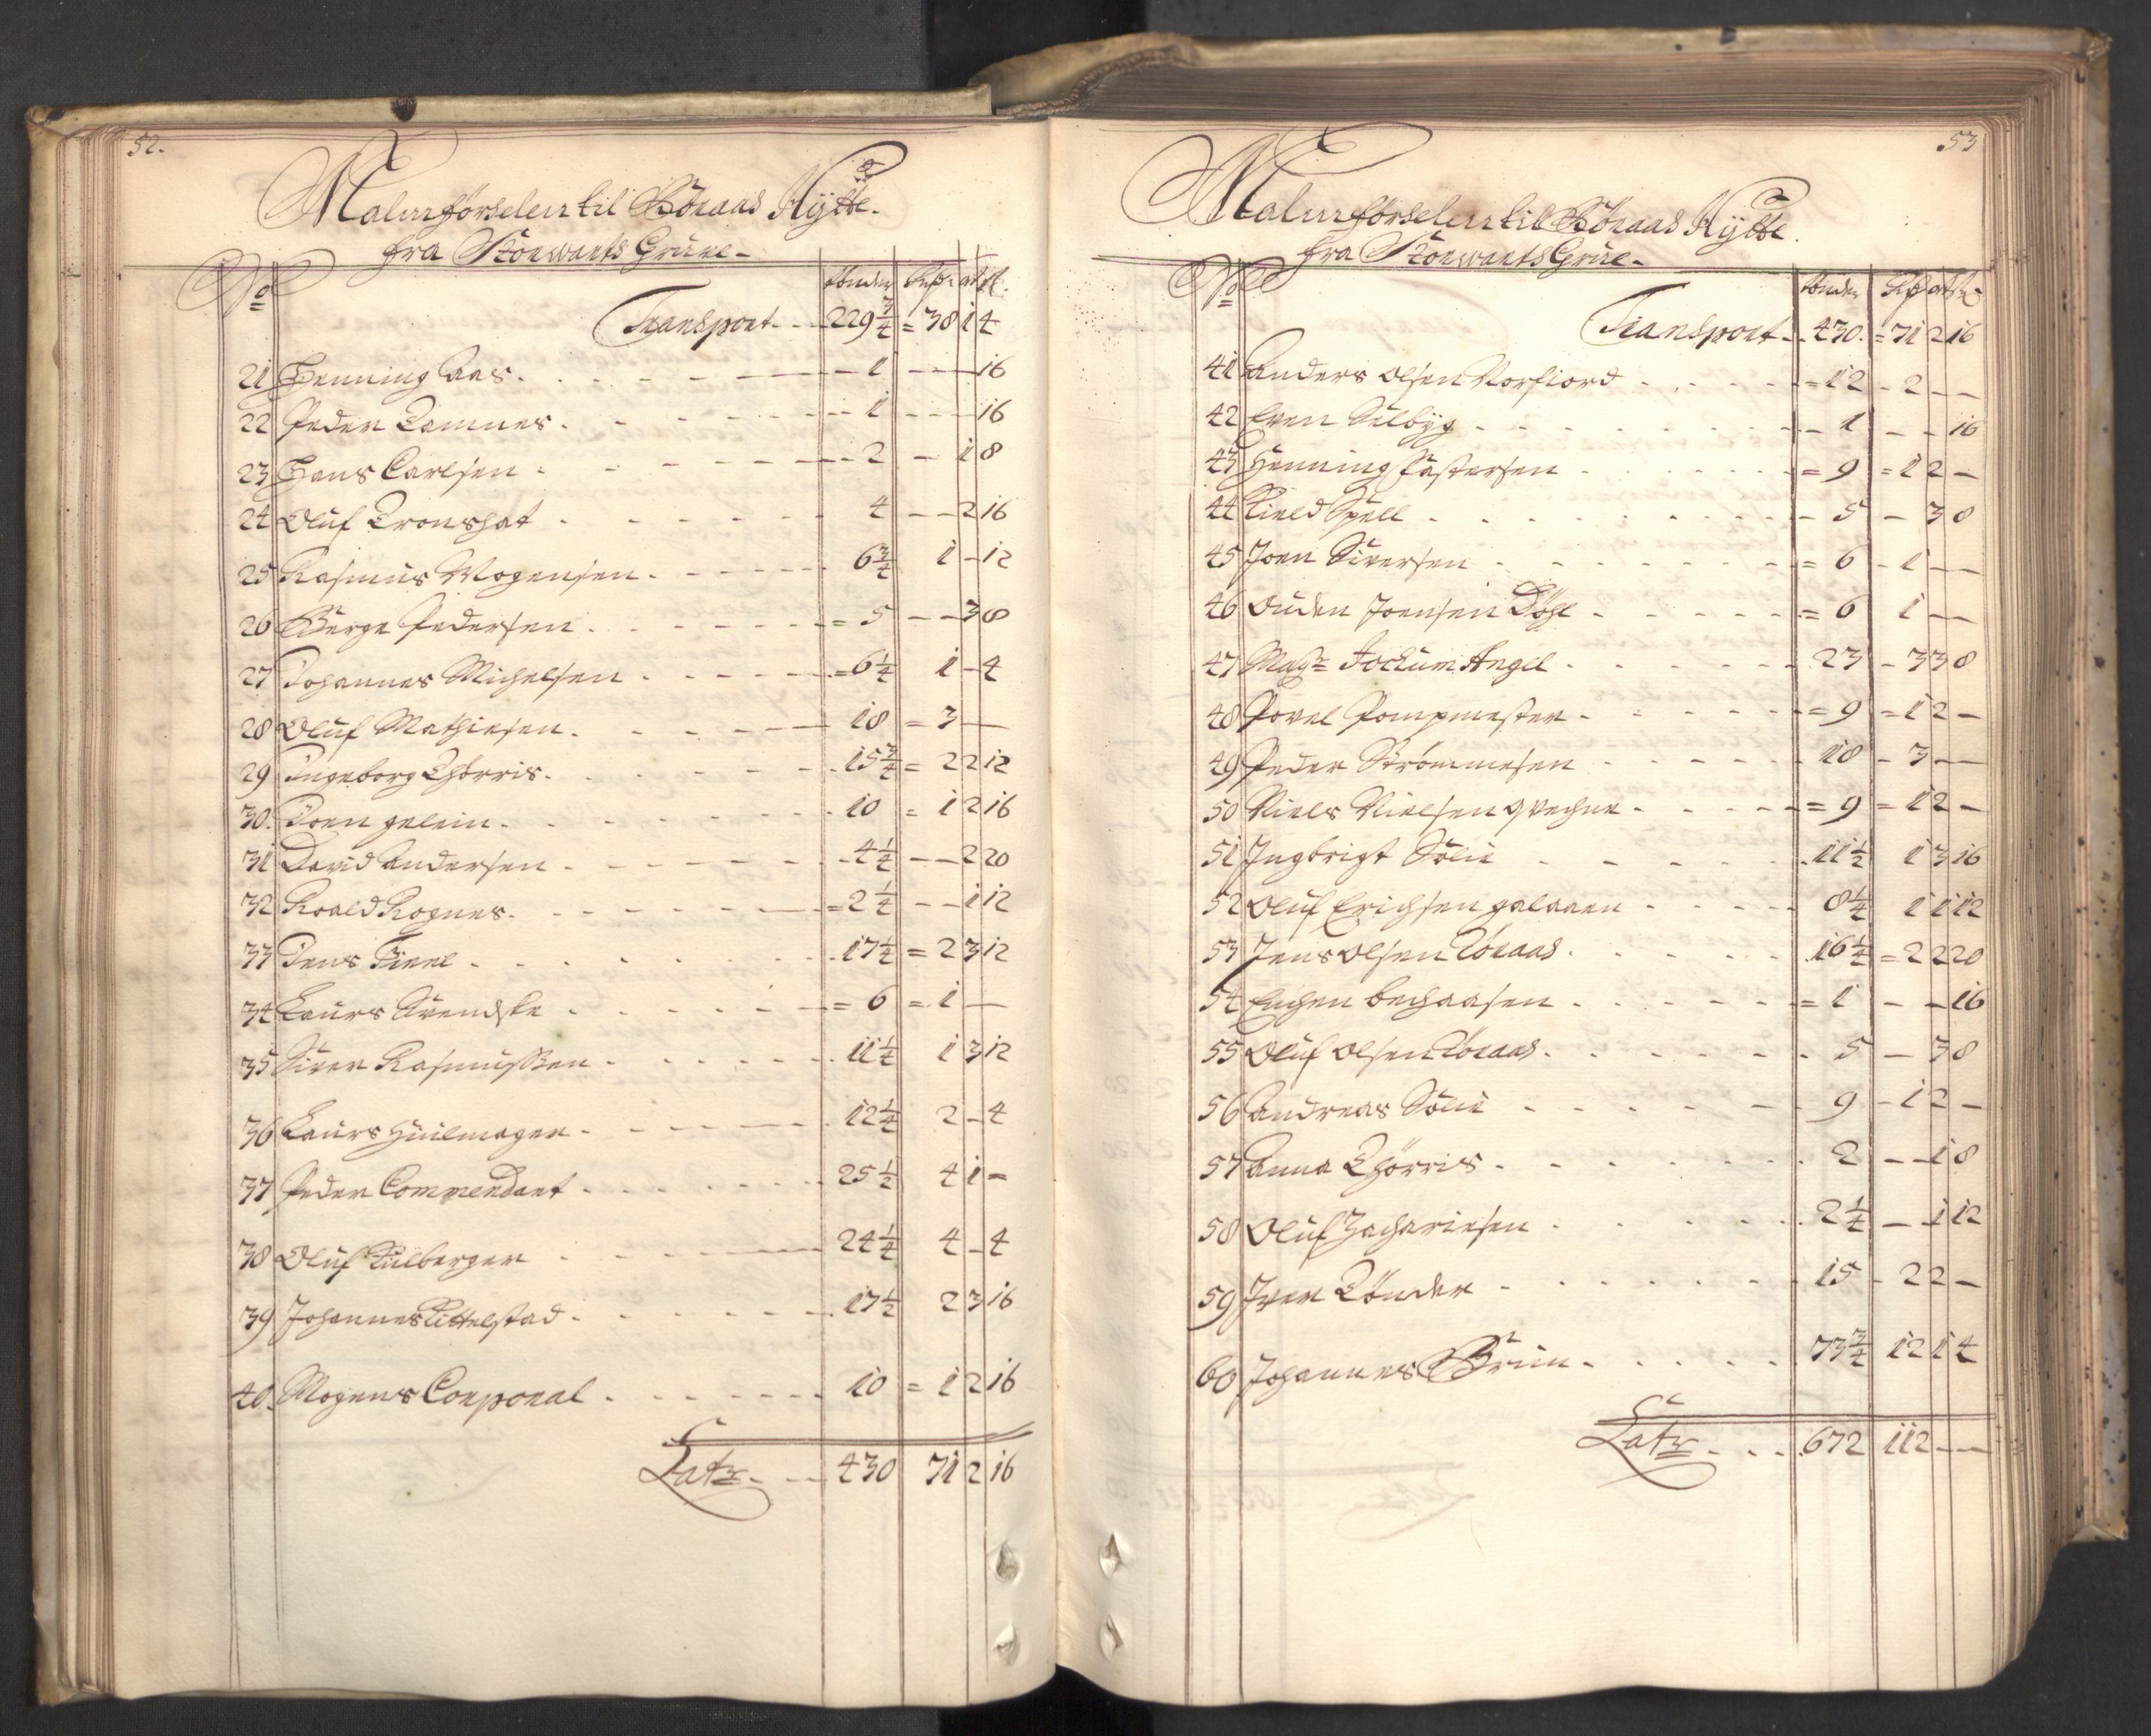 52.
Malmførselen til Røraas Hytte.
fra Storwarts Grube
No
tønder Rdr ort ß.
Transport - - 229 3/4 = 38 1 4
21 Henning Aas. - 1 - - 16
22 Peder Tamnes. - 1 - - 16
23 Hans Carlsen - 2 - 1 8
24 Oluf Tronshat - 4 - - 2 16
25 Rasmus Mogensen. - 6 3/4 1 - 12
26 Børge Pedersen. = 5 - - 3 8
27 Johannes Michelsen - = 6 1/4 1 - 4
28 Oluf Mathiesen. - 18 = 3 -
29 Ingeborg Thorris. - 15 3/4 = 2 2 12
30. Joen - 10 = 1 2 16
31 David Andersen - 4 1/4 - - 2 20
32 Roald Rognes. = 2 1/4 - - 1 12
33 Jens - 17 1/4 = 2 3 12
34 Laurs Svendske - = 6 = 1 -
35 Siver Rasmussen - 11 1/4 1 3 12
36 Laurs Huilmager - 12 1/4 2 - 4
37 Peder Commendant - 25 1/2 4 1 =
38 Oluf Kulberger - 24 1/4 4 - 4
39 Johannes Kittelstad - 17 1/2 2 3 16
40. Mogens Corporal - 10 = 1 2 16
Latr - - 430 71 2 16
53
Malmførselen til Røraas Hytte.
fra Storwarts Grube
No
tønder Rdr ort ß
Transport - 430. = 71 2 16
41 Anders Olsen Norfiord - = 12 - 2 - -
42 Even Selbyg - 1 - - 16
43 Henning Pastersen - = 9 = 1 2 -
44 Kield Spell - 5 - 3 8
45 Joen Siversen - = 6 - 1 - -
46 Ouden Joensen Døhl - = 6 1 - -
47 Madr Jochum Angel - 23 - 3 3 8
48 Povel Pompmester - = 9 = 1 2 -
49 Peder Strømmesen - 18 - 3 - -
50 Niels Nielsen - = 9 = 1 2 -
51 Ingbrigt Sølie - 11 1/2 1 3 16
52 Oluf Erichsen Galaaen - 8 1/4 1 1 12
53 Jens Olsen Røraas. - 16 1/4 = 2 2 20
54 - = 1 - - 16
55 Oluf Olsen Røraas. - 5 - 3 8
56 Andreas Sølie - 9 - 1 2 -
57 Anna Thørris - 2 - - 1 8
58 Oluf Zachariesen - 2 1/4 - 1 12
59 Iver Tønder - 15 - 2 2 -
60 Johannes Bruun - 73 3/4 12 1 4
Latr - - 672 112 - -